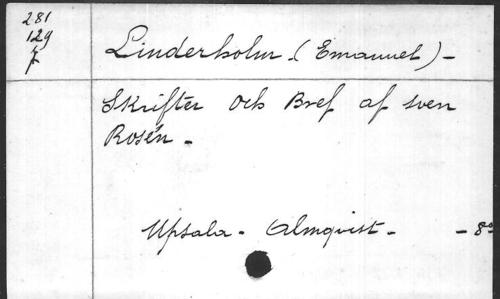 281
129
Linderholm (Emanuel) -
Skrifter och Bref af Sven
Rosén -
Upsala - Almqvist - - 8º